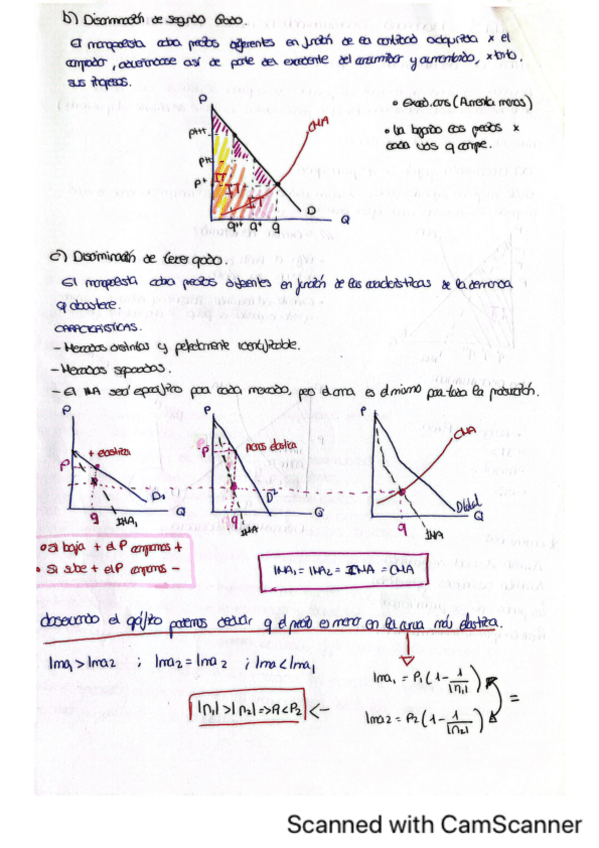 b) Discriminación de segundo Grado.
El monopolista cobra precios diferentes en función de la cantidad adquirida x el
comprador, adueñándose así de parte del excedente del consumidor y aumentado, x tanto,
sus ingresos.
P
CMA
• Exced. cons (Amenta menos)
P++
• Va bajando los precios x
cada uds q compre.
P+
IT
IT
IT
D
q** q* q
Q
c) Discriminación de tercer grado.
El monopolista cobra precios diferentes en función de las características de la demanda
q abastece.
CARACTERÍSTICAS.
- Mercados distintos y perfectamente identificable.
- Mercados separados.
- El IMA será específico para cada mercado, pero el cma es el mismo para toda la producción.
P P P
+ elastica
menos elastica
CMA
P P
D1 D2 Dtotal
Q Q Q
q q q
IMA1 IMA IMA
• Si baja + el P compramos +
• Si sube + el P compramos -
IMA1 = IMA2 = IMA = CMA
observando el gráfico podemos deducir q el precio es menor en la curva más elastica.
Ima1 > Ima2 ; Ima2 = Ima2 ; Ima < Ima1
Ima1 = P1 (1 - 1/|η1|)
=
|η1| > |η2| => P1 < P2 <-
Ima2 = P2 (1 - 1/|η2|)
Scanned with CamScanner